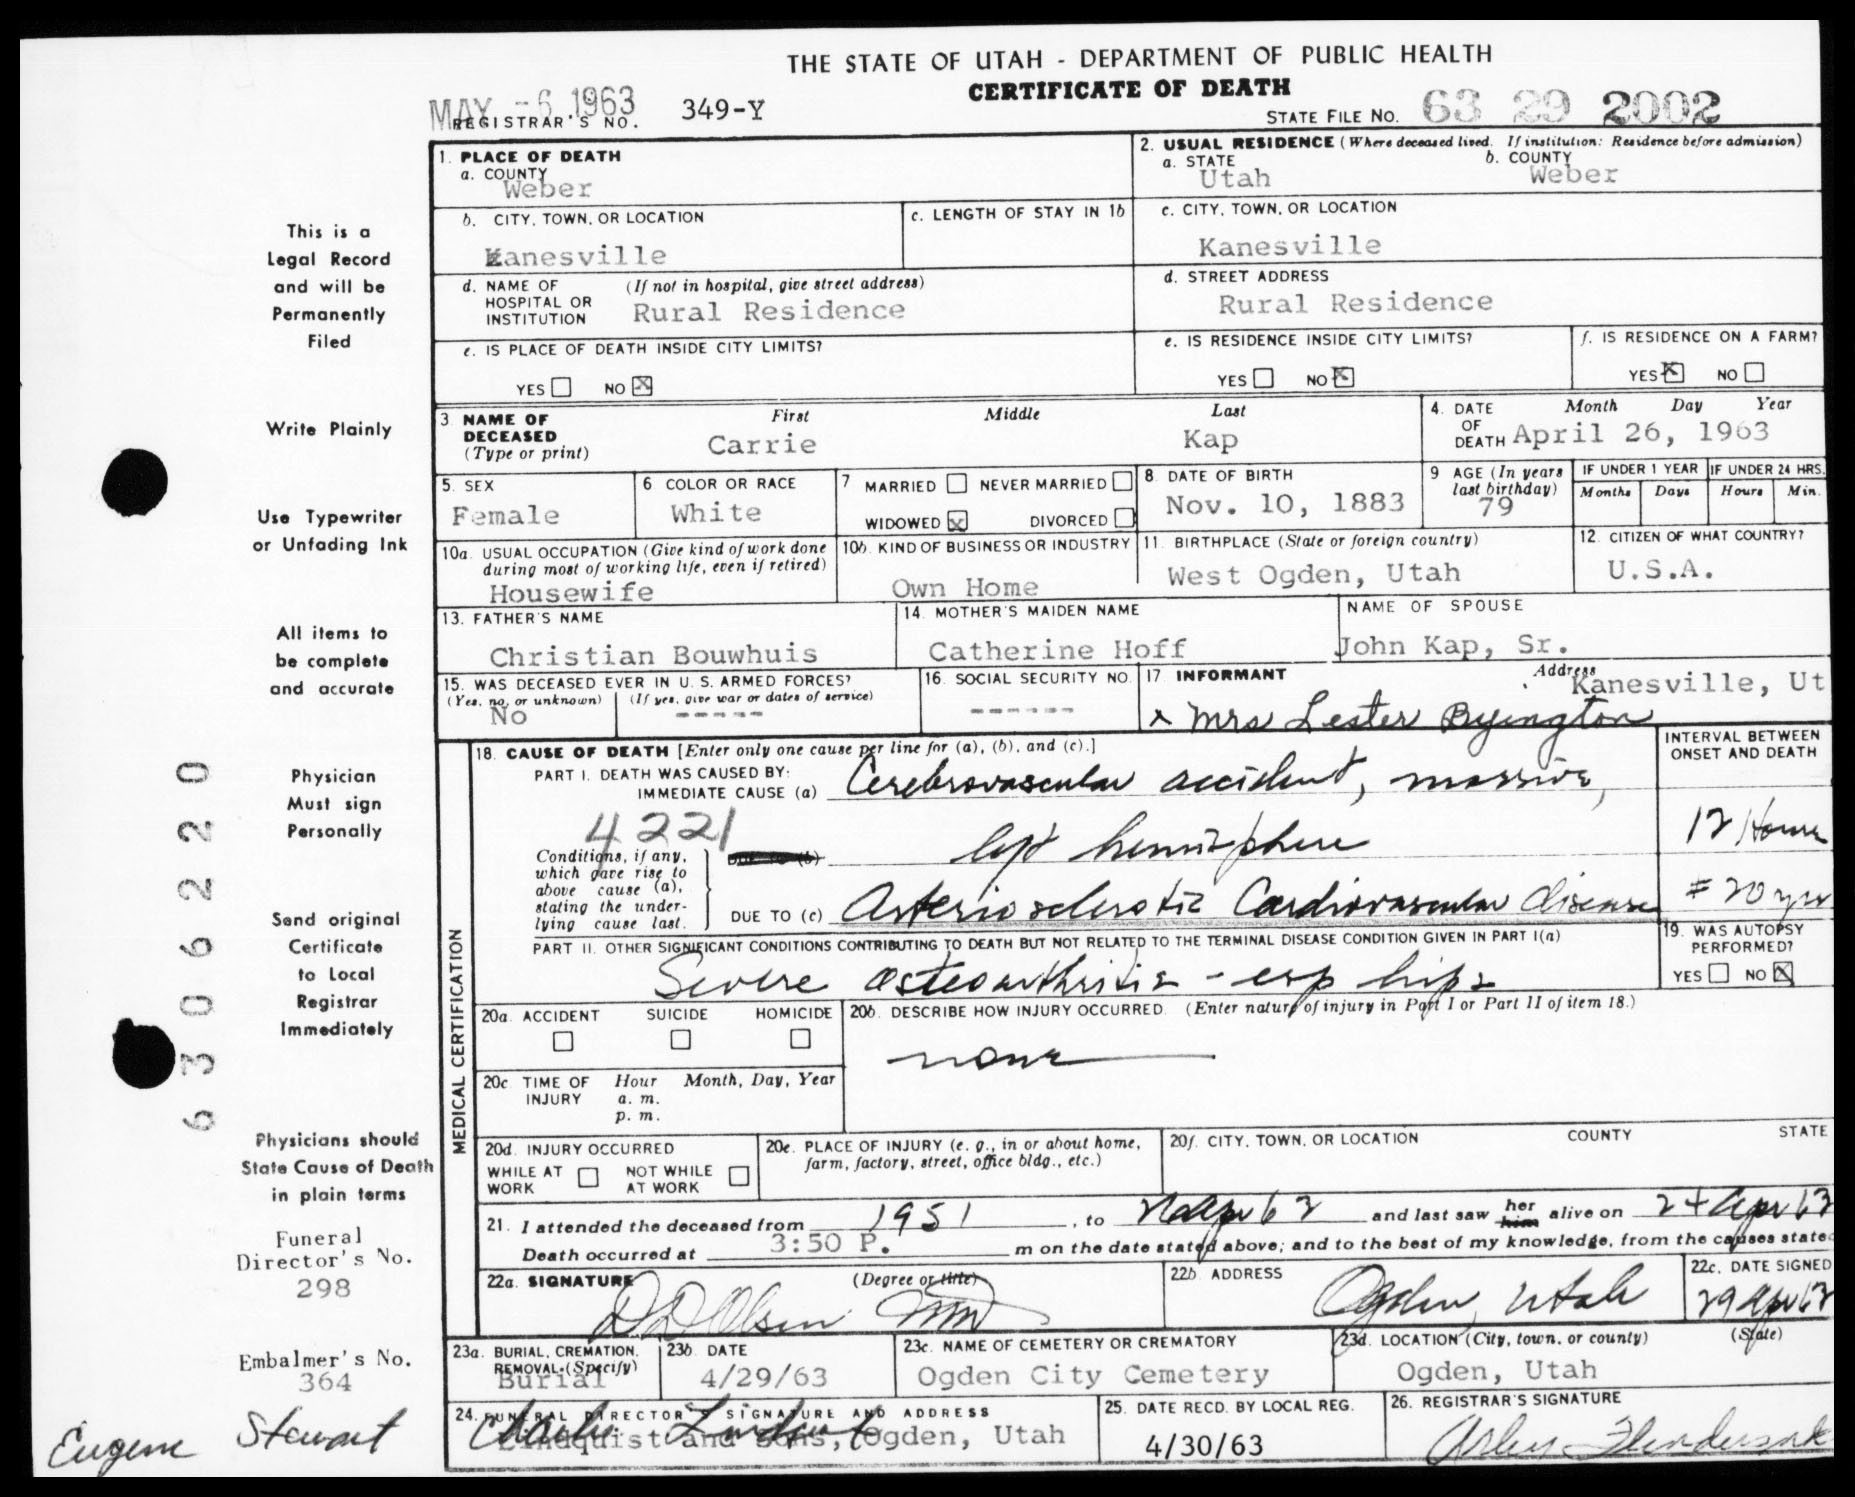 THE STATE OF UTAH - DEPARTMENT OF PUBLIC HEALTH
CERTIFICATE OF DEATH
MAY -6 1963
REGISTRAR'S NO. 349-Y
STATE FILE NO. 63 29 2002
1. PLACE OF DEATH
a. COUNTY
Weber
2. USUAL RESIDENCE (Where deceased lived. If institution: Residence before admission)
a. STATE b. COUNTY
Utah Weber
b. CITY, TOWN, OR LOCATION
Kanesville
c. LENGTH OF STAY IN 1b
c. CITY, TOWN, OR LOCATION
Kanesville
d. NAME OF HOSPITAL OR INSTITUTION (If not in hospital, give street address)
Rural Residence
d. STREET ADDRESS
Rural Residence
e. IS PLACE OF DEATH INSIDE CITY LIMITS?
YES NO X
e. IS RESIDENCE INSIDE CITY LIMITS?
YES NO X
f. IS RESIDENCE ON A FARM?
YES X NO
3. NAME OF DECEASED (Type or print)
First Middle Last
Carrie Kap
4. DATE OF DEATH
Month Day Year
April 26, 1963
5. SEX
Female
6. COLOR OR RACE
White
7. MARRIED NEVER MARRIED
WIDOWED X DIVORCED
8. DATE OF BIRTH
Nov. 10, 1883
9. AGE (In years last birthday)
79
IF UNDER 1 YEAR
Months Days
IF UNDER 24 HRS.
Hours Min.
10a. USUAL OCCUPATION (Give kind of work done during most of working life, even if retired)
Housewife
10b. KIND OF BUSINESS OR INDUSTRY
Own Home
11. BIRTHPLACE (State or foreign country)
West Ogden, Utah
12. CITIZEN OF WHAT COUNTRY?
U.S.A.
13. FATHER'S NAME
Christian Bouwhuis
14. MOTHER'S MAIDEN NAME
Catherine Hoff
NAME OF SPOUSE
John Kap, Sr.
15. WAS DECEASED EVER IN U. S. ARMED FORCES?
(Yes, no, or unknown) (If yes, give war or dates of service)
No -----
16. SOCIAL SECURITY NO.
------
17. INFORMANT Address
Kanesville, Ut
x Mrs Lester Byington
MEDICAL CERTIFICATION
18. CAUSE OF DEATH [Enter only one cause per line for (a), (b), and (c).]
INTERVAL BETWEEN ONSET AND DEATH
PART I. DEATH WAS CAUSED BY:
IMMEDIATE CAUSE (a) Cerebrovascular accident, massive,
4221
Conditions, if any, which gave rise to above cause (a), stating the underlying cause last.
DUE TO (b) left hemisphere
12 Hours
DUE TO (c) Arteriosclerotic Cardiovascular Disease
# 20 yrs
PART II. OTHER SIGNIFICANT CONDITIONS CONTRIBUTING TO DEATH BUT NOT RELATED TO THE TERMINAL DISEASE CONDITION GIVEN IN PART I(a)
Severe osteoarthritis - esp hips
19. WAS AUTOPSY PERFORMED?
YES NO X
20a. ACCIDENT SUICIDE HOMICIDE
20b. DESCRIBE HOW INJURY OCCURRED. (Enter nature of injury in Part I or Part II of item 18.)
none
20c. TIME OF INJURY Hour Month, Day, Year
a. m.
p. m.
20d. INJURY OCCURRED
WHILE AT WORK NOT WHILE AT WORK
20e. PLACE OF INJURY (e. g., in or about home, farm, factory, street, office bldg., etc.)
20f. CITY, TOWN, OR LOCATION COUNTY STATE
21. I attended the deceased from 1951, to Apr 63 and last saw her him alive on 24 Apr 63
Death occurred at 3:50 P. m on the date stated above; and to the best of my knowledge, from the causes stated
22a. SIGNATURE (Degree or title)
D D Olsen MD
22b. ADDRESS
Ogden, Utah
22c. DATE SIGNED
29 Apr 63
23a. BURIAL, CREMATION, REMOVAL (Specify)
Burial
23b. DATE
4/29/63
23c. NAME OF CEMETERY OR CREMATORY
Ogden City Cemetery
23d. LOCATION (City, town, or county) (State)
Ogden, Utah
24. FUNERAL DIRECTOR'S SIGNATURE AND ADDRESS
Charles Lindquist
Lindquist and Sons, Ogden, Utah
25. DATE RECD. BY LOCAL REG.
4/30/63
26. REGISTRAR'S SIGNATURE
This is a
Legal Record
and will be
Permanently
Filed
Write Plainly
Use Typewriter
or Unfading Ink
All items to
be complete
and accurate
Physician
Must sign
Personally
Send original
Certificate
to Local
Registrar
Immediately
Physicians should
State Cause of Death
in plain terms
Funeral
Director's No.
298
Embalmer's No.
364
Eugene Stewart
6306220